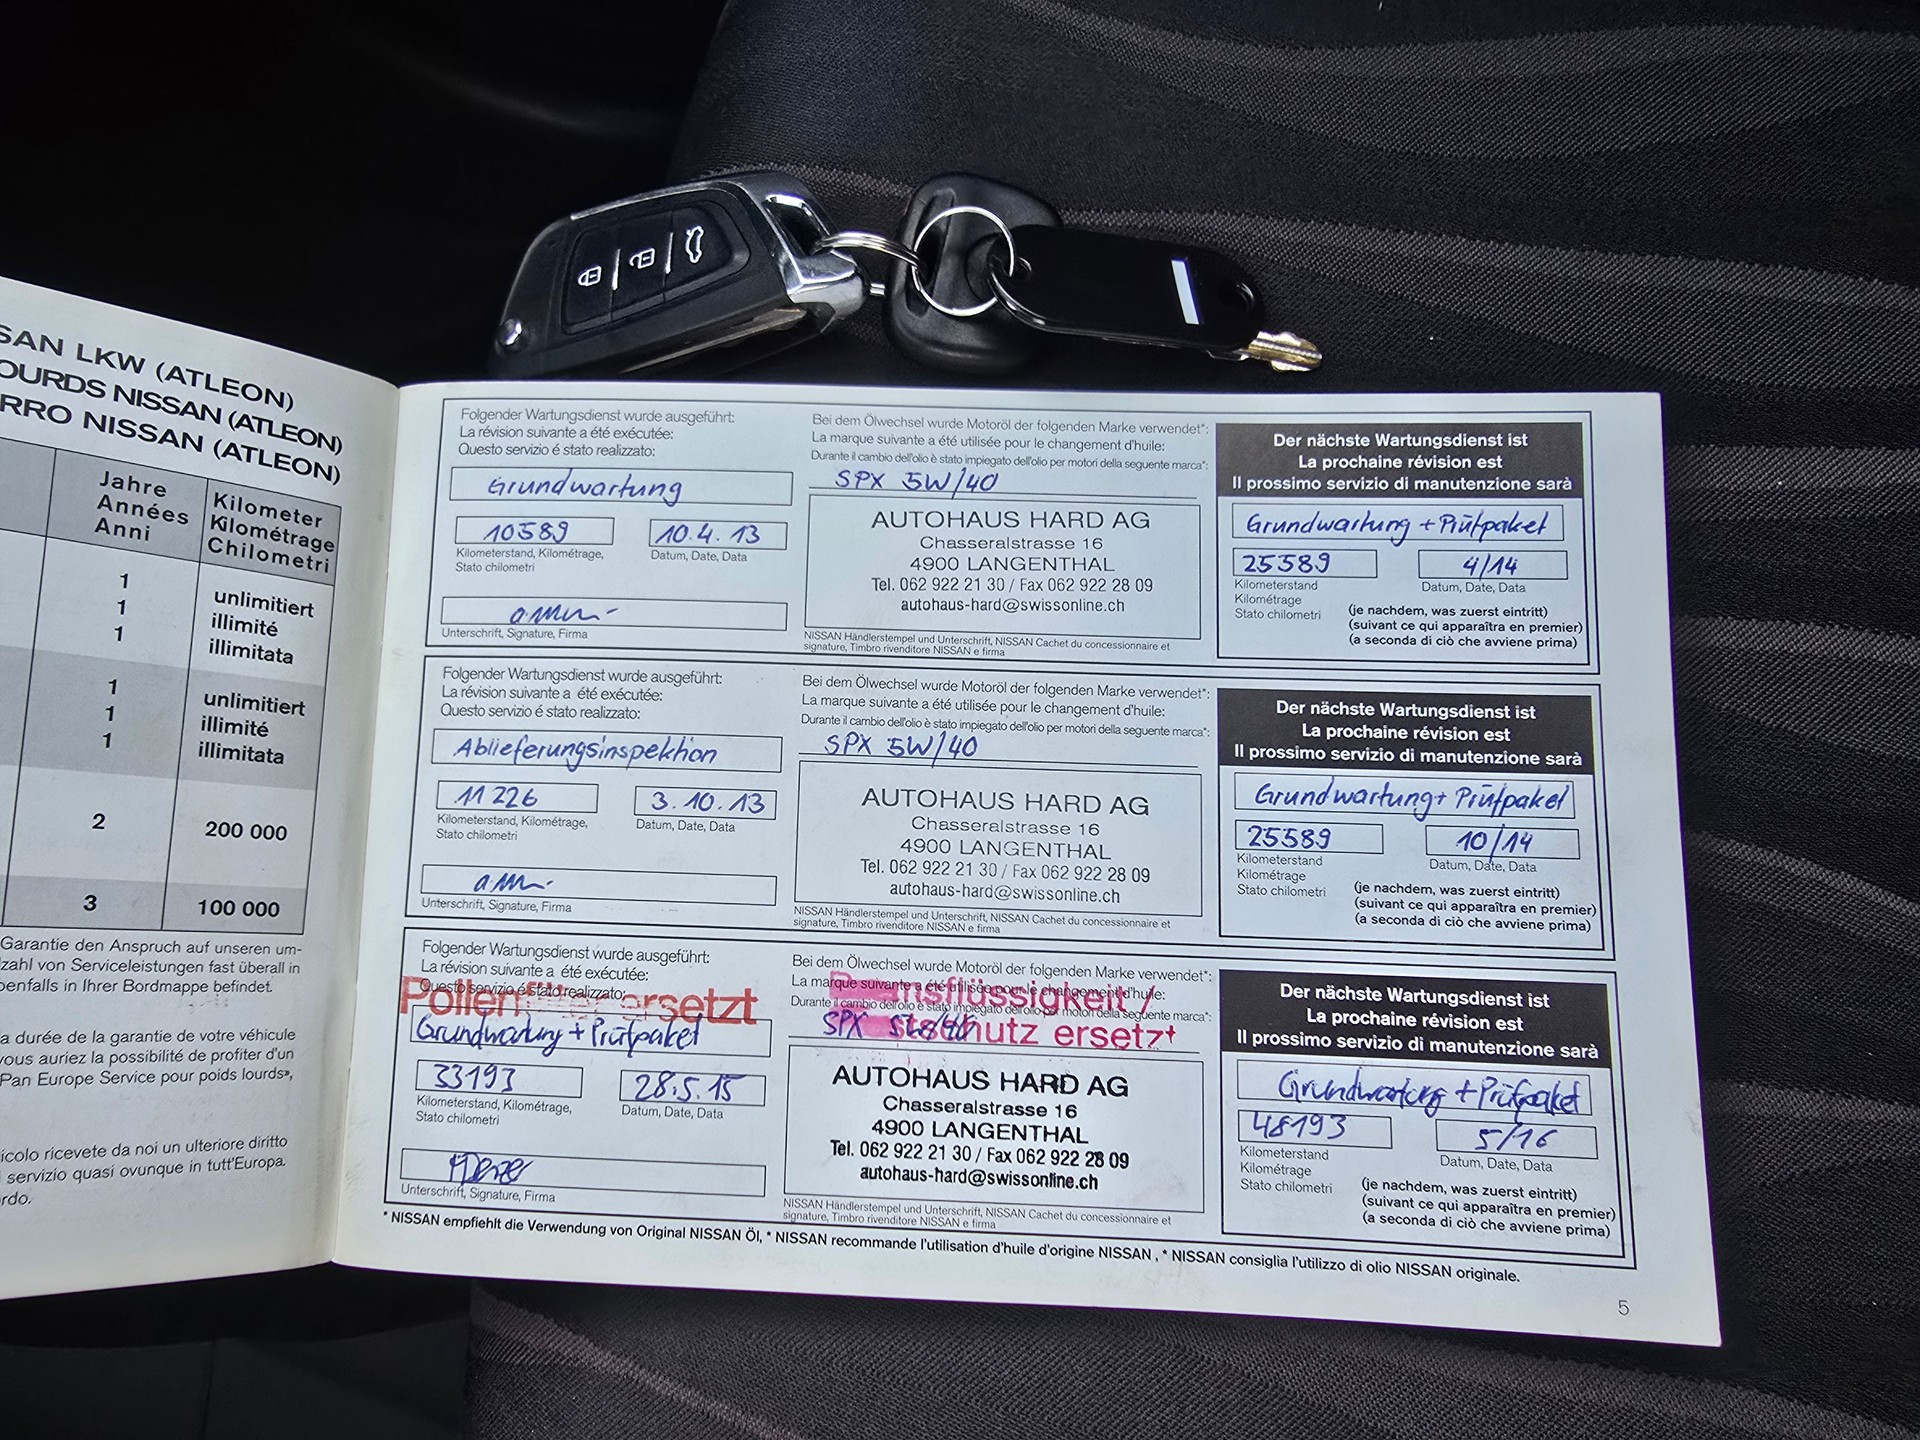 SAN LKW (ATLEON)
OURDS NISSAN (ATLEON)
RRO NISSAN (ATLEON)
Jahre
Années
Anni
Kilometer
Kilométrage
Chilometri
1
1
1
unlimitiert
illimité
illimitata
1
1
1
unlimitiert
illimité
illimitata
2
200 000
3
100 000
Garantie den Anspruch auf unseren um-
zahl von Serviceleistungen fast überall in
benfalls in Ihrer Bordmappe befindet.
a durée de la garantie de votre véhicule
vous auriez la possibilité de profiter d'un
Pan Europe Service pour poids lourds»,
icolo ricevete da noi un ulteriore diritto
servizio quasi ovunque in tutt'Europa.
rdo.
Folgender Wartungsdienst wurde ausgeführt:
La révision suivante a été exécutée:
Questo servizio é stato realizzato:
Grundwartung
10589
10.4.13
Kilometerstand, Kilométrage,
Stato chilometri
Datum, Date, Data
Unterschrift, Signature, Firma
Bei dem Ölwechsel wurde Motoröl der folgenden Marke verwendet*:
La marque suivante a été utilisée pour le changement d'huile:
Durante il cambio dell'olio è stato impiegato dell'olio per motori della seguente marca*:
SPX 5W/40
AUTOHAUS HARD AG
Chasseralstrasse 16
4900 LANGENTHAL
Tel. 062 922 21 30 / Fax 062 922 28 09
autohaus-hard@swissonline.ch
NISSAN Händlerstempel und Unterschrift, NISSAN Cachet du concessionnaire et
signature, Timbro rivenditore NISSAN e firma
Der nächste Wartungsdienst ist
La prochaine révision est
Il prossimo servizio di manutenzione sarà
Grundwartung + Prüfpaket
25589
4/14
Kilometerstand
Kilométrage
Stato chilometri
Datum, Date, Data
(je nachdem, was zuerst eintritt)
(suivant ce qui apparaîtra en premier)
(a seconda di ciò che avviene prima)
Folgender Wartungsdienst wurde ausgeführt:
La révision suivante a été exécutée:
Questo servizio é stato realizzato:
Ablieferungsinspektion
11226
3.10.13
Kilometerstand, Kilométrage,
Stato chilometri
Datum, Date, Data
Unterschrift, Signature, Firma
Bei dem Ölwechsel wurde Motoröl der folgenden Marke verwendet*:
La marque suivante a été utilisée pour le changement d'huile:
Durante il cambio dell'olio è stato impiegato dell'olio per motori della seguente marca*:
SPX 5W/40
AUTOHAUS HARD AG
Chasseralstrasse 16
4900 LANGENTHAL
Tel. 062 922 21 30 / Fax 062 922 28 09
autohaus-hard@swissonline.ch
NISSAN Händlerstempel und Unterschrift, NISSAN Cachet du concessionnaire et
signature, Timbro rivenditore NISSAN e firma
Der nächste Wartungsdienst ist
La prochaine révision est
Il prossimo servizio di manutenzione sarà
Grundwartung + Prüfpaket
25589
10/14
Kilometerstand
Kilométrage
Stato chilometri
Datum, Date, Data
(je nachdem, was zuerst eintritt)
(suivant ce qui apparaîtra en premier)
(a seconda di ciò che avviene prima)
Folgender Wartungsdienst wurde ausgeführt:
La révision suivante a été exécutée:
Questo servizio é stato realizzato:
ersetzt
Grundwartung + Prüfpaket
33193
28.5.15
Kilometerstand, Kilométrage,
Stato chilometri
Datum, Date, Data
Unterschrift, Signature, Firma
Bei dem Ölwechsel wurde Motoröl der folgenden Marke verwendet*:
La marque suivante a été utilisée pour le changement d'huile:
Durante il cambio dell'olio è stato impiegato dell'olio per motori della seguente marca*:
SPX 5W/40
ersetzt
AUTOHAUS HARD AG
Chasseralstrasse 16
4900 LANGENTHAL
Tel. 062 922 21 30 / Fax 062 922 28 09
autohaus-hard@swissonline.ch
NISSAN Händlerstempel und Unterschrift, NISSAN Cachet du concessionnaire et
signature, Timbro rivenditore NISSAN e firma
Der nächste Wartungsdienst ist
La prochaine révision est
Il prossimo servizio di manutenzione sarà
Grundwartung + Prüfpaket
48193
5/16
Kilometerstand
Kilométrage
Stato chilometri
Datum, Date, Data
(je nachdem, was zuerst eintritt)
(suivant ce qui apparaîtra en premier)
(a seconda di ciò che avviene prima)
* NISSAN empfiehlt die Verwendung von Original NISSAN Öl, * NISSAN recommande l'utilisation d'huile d'origine NISSAN , * NISSAN consiglia l'utilizzo di olio NISSAN originale.
5